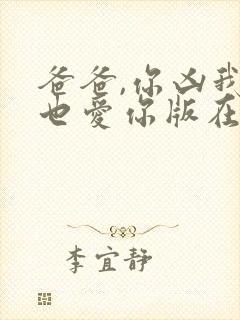 爸爸,你凶我
也爱你版在
李宜静